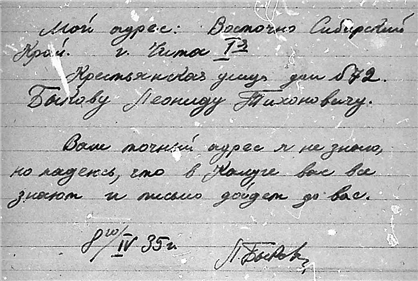 Мой адрес: Восточно Сибирский
Край. г. Чита 13
Крестьянская улица дом № 72.
Быкову Леониду Тихоновичу.
Ваш точный адрес я не знаю,
но надеюсь, что в Калуге вас все
знают и письмо дойдет до вас.
8го/IV 35 г.
Л Быков